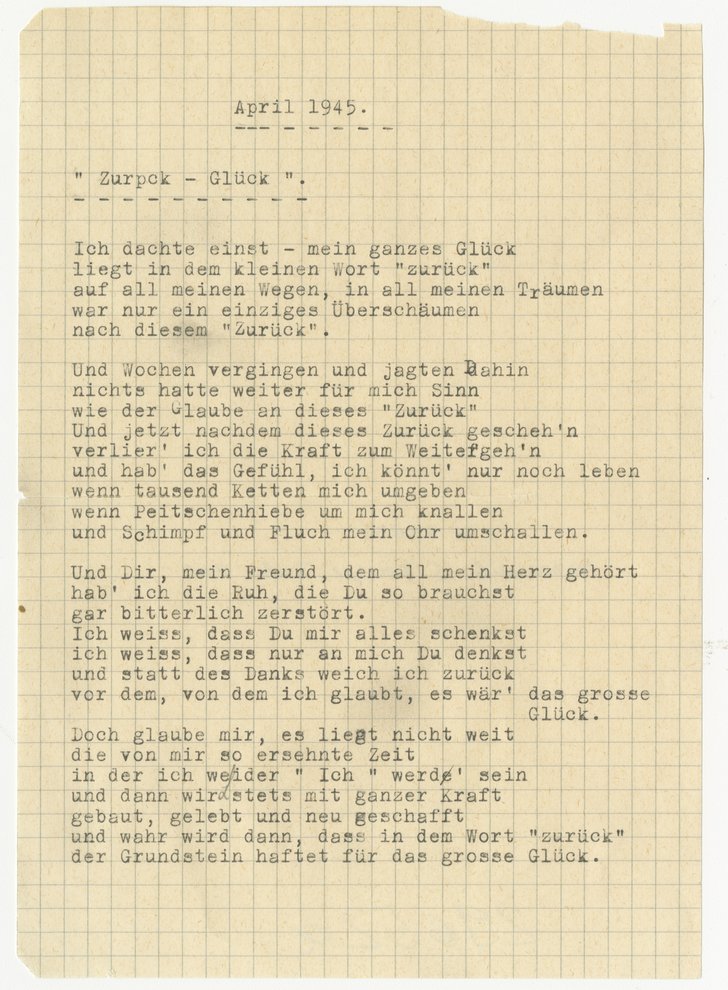 April 1945.
" Zurpck - Glück ".
Ich dachte einst - mein ganzes Glück
liegt in dem kleinen Wort "zurück"
auf all meinen Wegen, in all meinen Träumen
war nur ein einziges Überschäumen
nach diesem "Zurück".
Und Wochen vergingen und jagten Dahin
nichts hatte weiter für mich Sinn
wie der Glaube an dieses "Zurück"
Und jetzt nachdem dieses Zurück gescheh'n
verlier' ich die Kraft zum Weitefgeh'n
und hab' das Gefühl, ich könnt' nur noch leben
wenn tausend Ketten mich umgeben
wenn Peitschenhiebe um mich knallen
und Schimpf und Fluch mein Ohr umschallen.
Und Dir, mein Freund, dem all mein Herz gehört
hab' ich die Ruh, die Du so brauchst
gar bitterlich zerstört.
Ich weiss, dass Du mir alles schenkst
ich weiss, dass nur an mich Du denkst
und statt des Danks weich ich zurück
vor dem, von dem ich glaubt, es wär' das grosse
Glück.
Doch glaube mir, es liegt nicht weit
die von mir so ersehnte Zeit
in der ich weider " Ich " werd' sein
und dann wird stets mit ganzer Kraft
gebaut, gelebt und neu geschafft
und wahr wird dann, dass in dem Wort "zurück"
der Grundstein haftet für das grosse Glück.